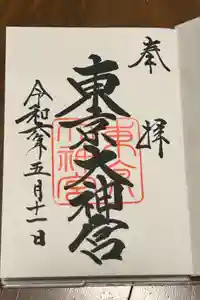 奉拝
東京大神宮
令和六年五月十一日
東京大神宮